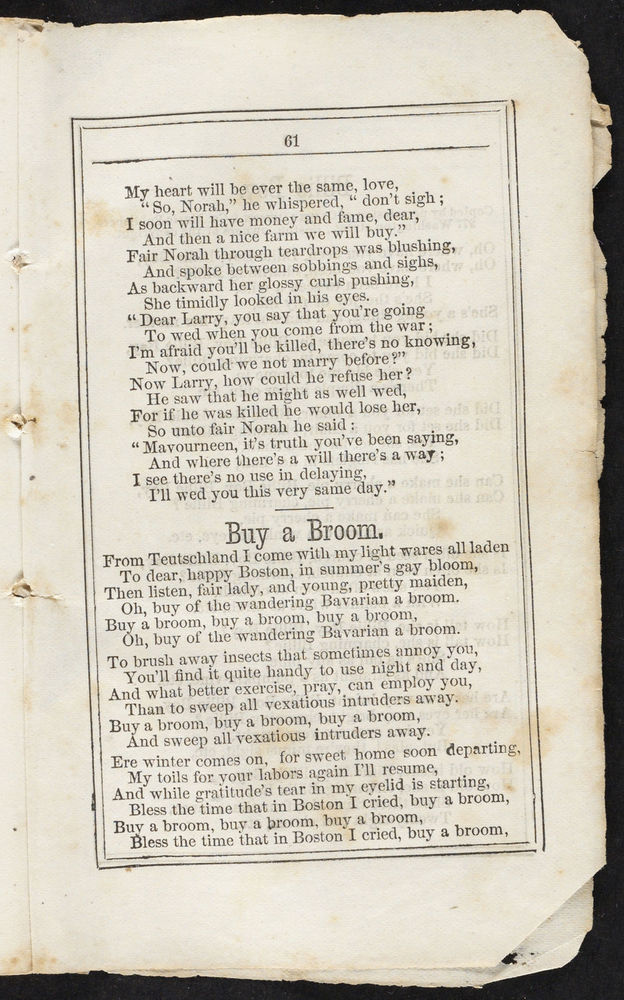 61
My heart will be ever the same, love,
“ So, Norah,” he whispered, “ don't sigh ;
I soon will have money and fame, dear,
And then a nice farm we will buy.”
Fair Norah through teardrops was blushing,
And spoke between sobbings and sighs,
As backward her glossy curls pushing,
She timidly looked in his eyes.
“ Dear Larry, you say that you're going
To wed when you come from the war ;
I'm afraid you'll be killed, there's no knowing,
Now, could we not marry before ?”
Now Larry, how could he refuse her ?
He saw that he might as well wed,
For if he was killed he would lose her,
So unto fair Norah he said :
“ Mavourneen, it's truth you've been saying,
And where there's a will there's a way ;
I see there's no use in delaying,
I'll wed you this very same day.”
Buy a Broom.
From Teutschland I come with my light wares all laden
To dear, happy Boston, in summer's gay bloom,
Then listen, fair lady, and young, pretty maiden,
Oh, buy of the wandering Bavarian a broom.
Buy a broom, buy a broom, buy a broom,
Oh, buy of the wandering Bavarian a broom.
To brush away insects that sometimes annoy you,
You'll find it quite handy to use night and day,
And what better exercise, pray, can employ you,
Than to sweep all vexatious intruders away.
Buy a broom, buy a broom, buy a broom,
And sweep all vexatious intruders away.
Ere winter comes on, for sweet home soon departing,
My toils for your labors again I'll resume,
And while gratitude's tear in my eyelid is starting,
Bless the time that in Boston I cried, buy a broom,
Buy a broom, buy a broom, buy a broom,
Bless the time that in Boston I cried, buy a broom,